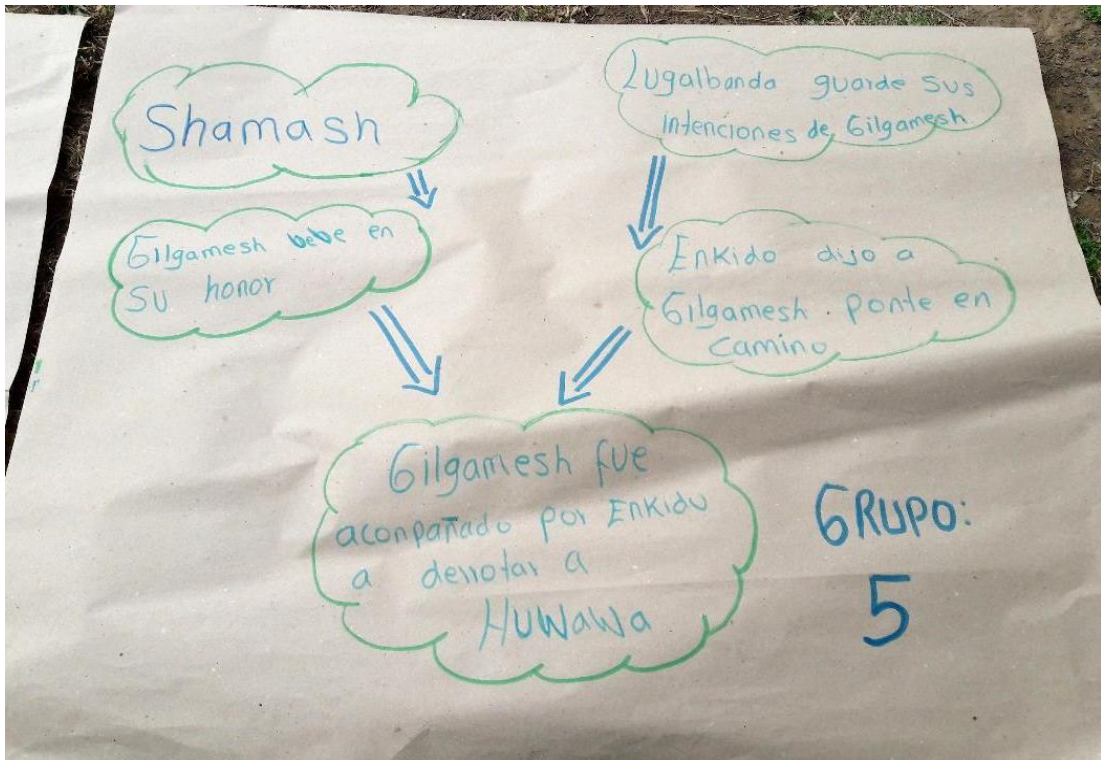 Shamash
Gilgamesh bebe en
su honor
Lugalbanda guarde sus
intenciones de Gilgamesh
Enkido dijo a
Gilgamesh. ponte en
camino
Gilgamesh fue
aconpañado por Enkidu
a derrotar a
Huwawa
GRUPO:
5